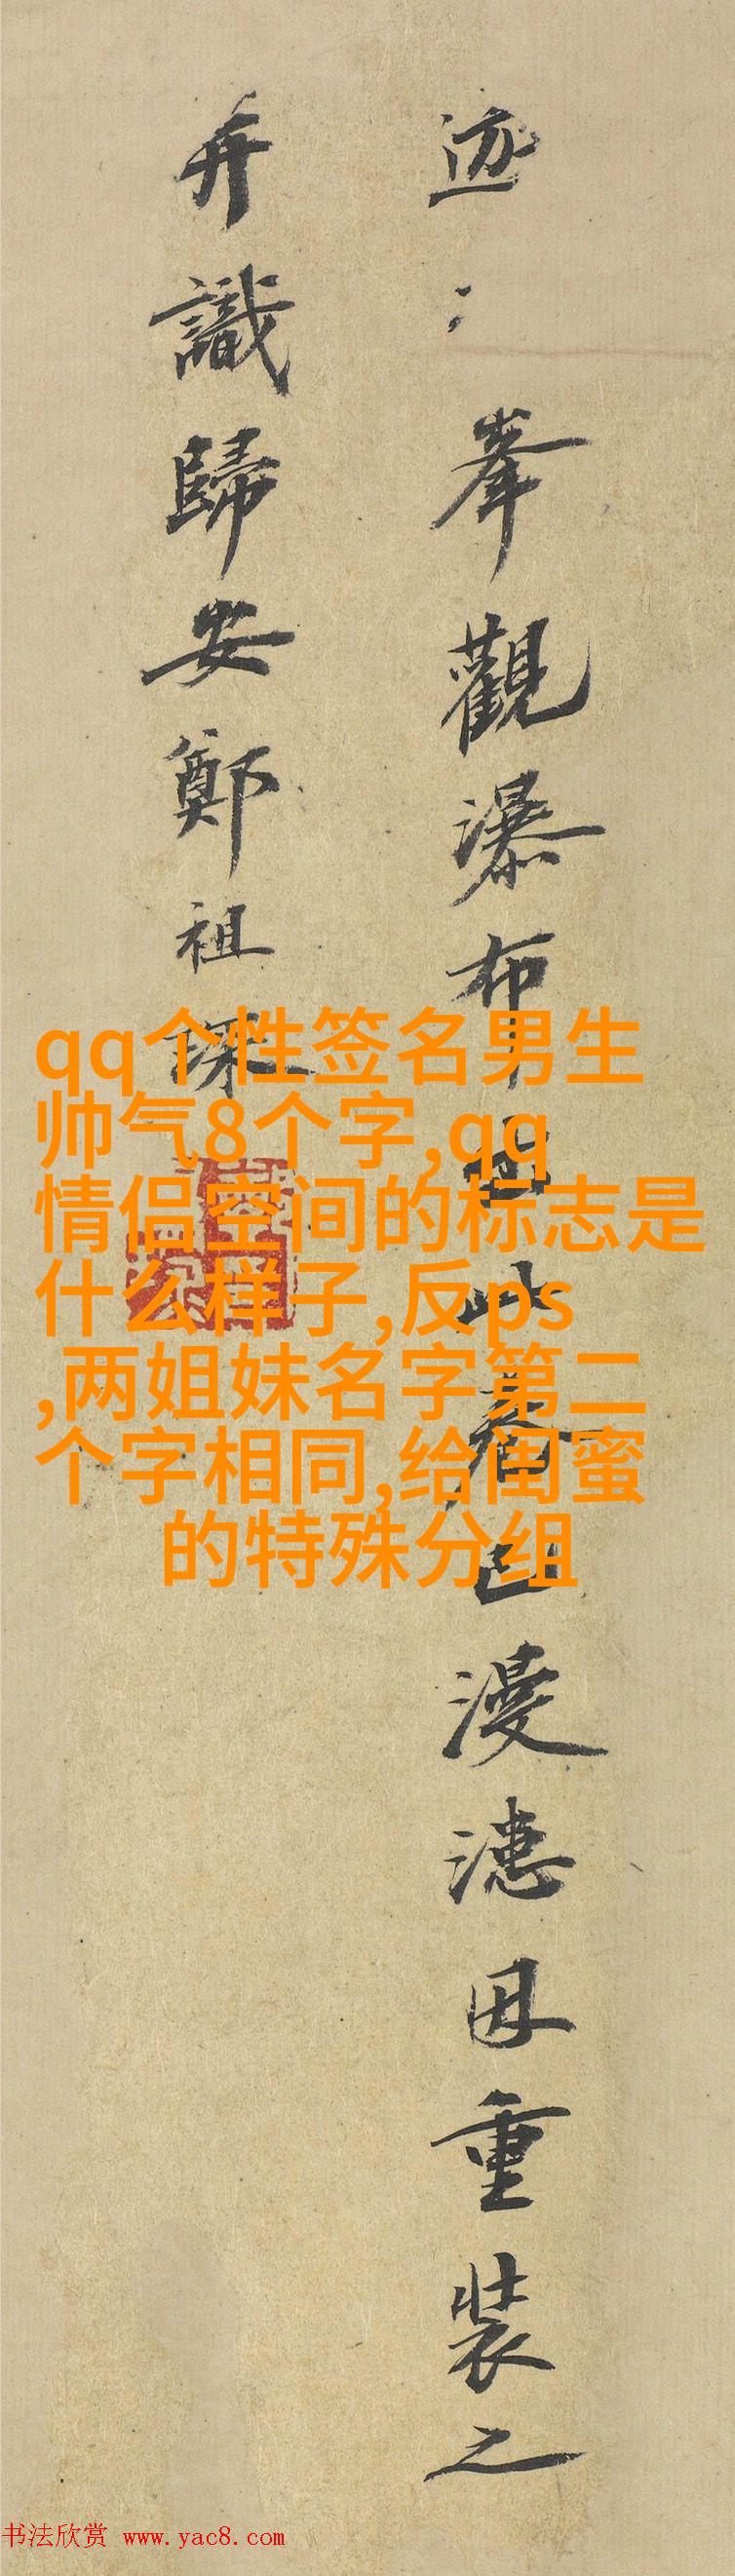 迹〻峯觀瀑布也此卷已漫漶因重裝之
并識歸安鄭祖琛
qq个性签名男生
帅气8个字,qq
情侣空间的标志是
什么样子,反ps
,两姐妹名字第二
个字相同,给闺蜜
的特殊分组
书法欣赏 www.yac8.com